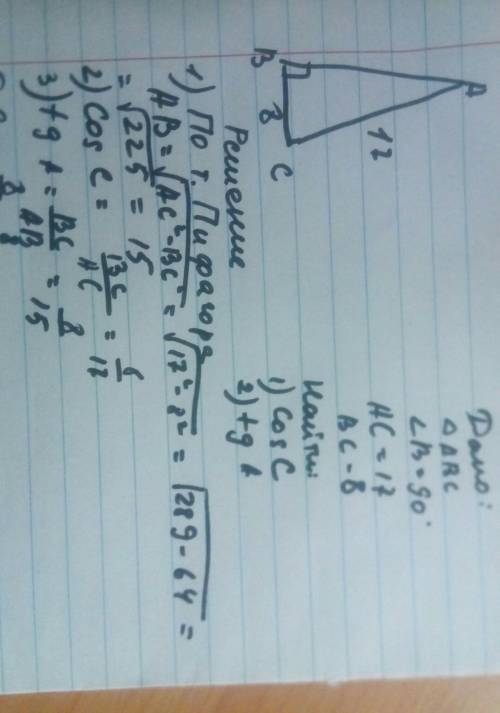 A
B
C
17
8
Дано:
△ABC
∠B=90°
AC=17
BC-8
Найти:
1) cos C
2) tg A
Решение
1) По т. Пифагора
AB=√AC²-BC² = √17²-8² = √289-64 =
=√225 = 15
2) Cos C = BC/AC = 8/17
3) tg A = BC/AB = 8/15